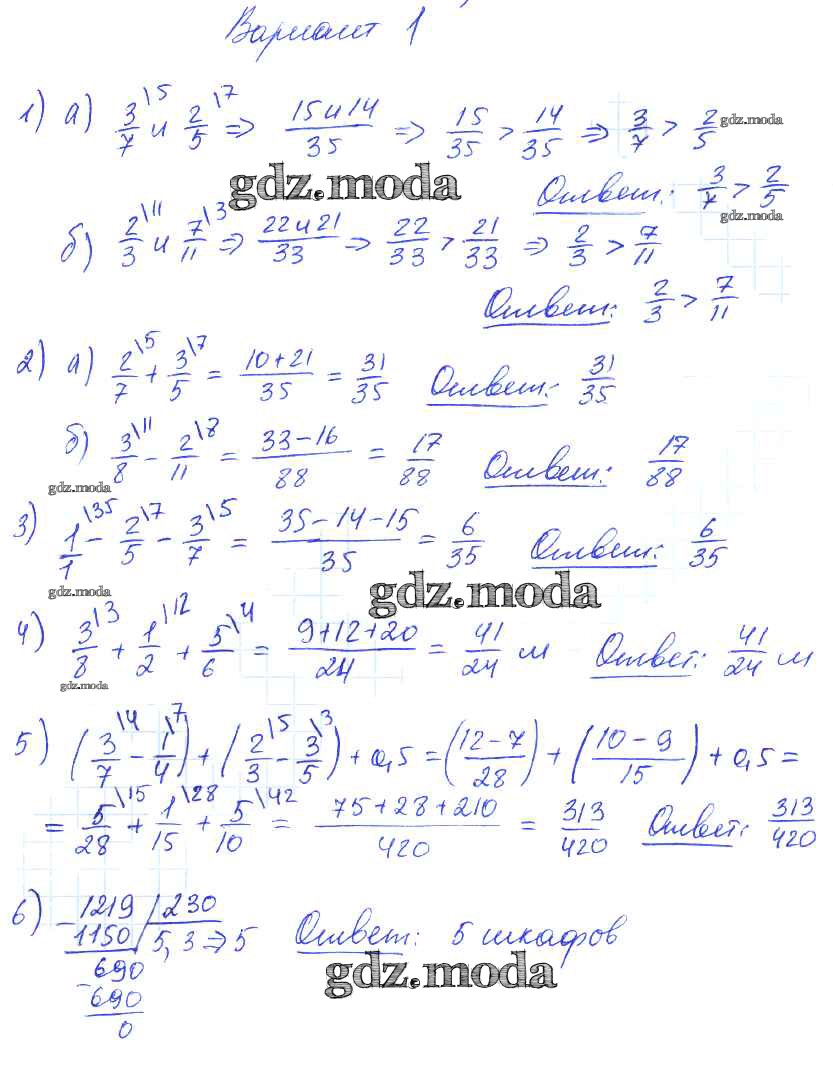 Вариант 1
1) а) 3/7 \5 и 2/5 \7 => 15 и 14/35 => 15/35 > 14/35 => 3/7 > 2/5 gdz.moda
gdz.moda Ответ: 3/7 > 2/5
gdz.moda
б) 2/3 \11 и 7/11 \3 => 22 и 21/33 => 22/33 > 21/33 => 2/3 > 7/11
Ответ: 2/3 > 7/11
2) а) 2/7 \5 + 3/5 \7 = 10+21/35 = 31/35 Ответ: 31/35
б) 3/8 \11 - 2/11 \8 = 33-16/88 = 17/88 Ответ: 17/88
gdz.moda
3) 1/1 \35 - 2/5 \7 - 3/7 \5 = 35-14-15/35 = 6/35 Ответ: 6/35
gdz.moda gdz.moda
4) 3/8 \3 + 1/2 \12 + 5/6 \4 = 9+12+20/24 = 41/24 м Ответ: 41/24 м
gdz.moda
5) (3/7 \4 - 1/4 \7) + (2/3 \5 - 3/5 \3) + 0,5 = (12-7/28) + (10-9/15) + 0,5 =
= 5/28 \15 + 1/15 \28 + 5/10 \42 = 75+28+210/420 = 313/420 Ответ: 313/420
6) - 1219 / 230
1150 5,3 => 5 Ответ: 5 шкафов
690 gdz.moda
- 690
0